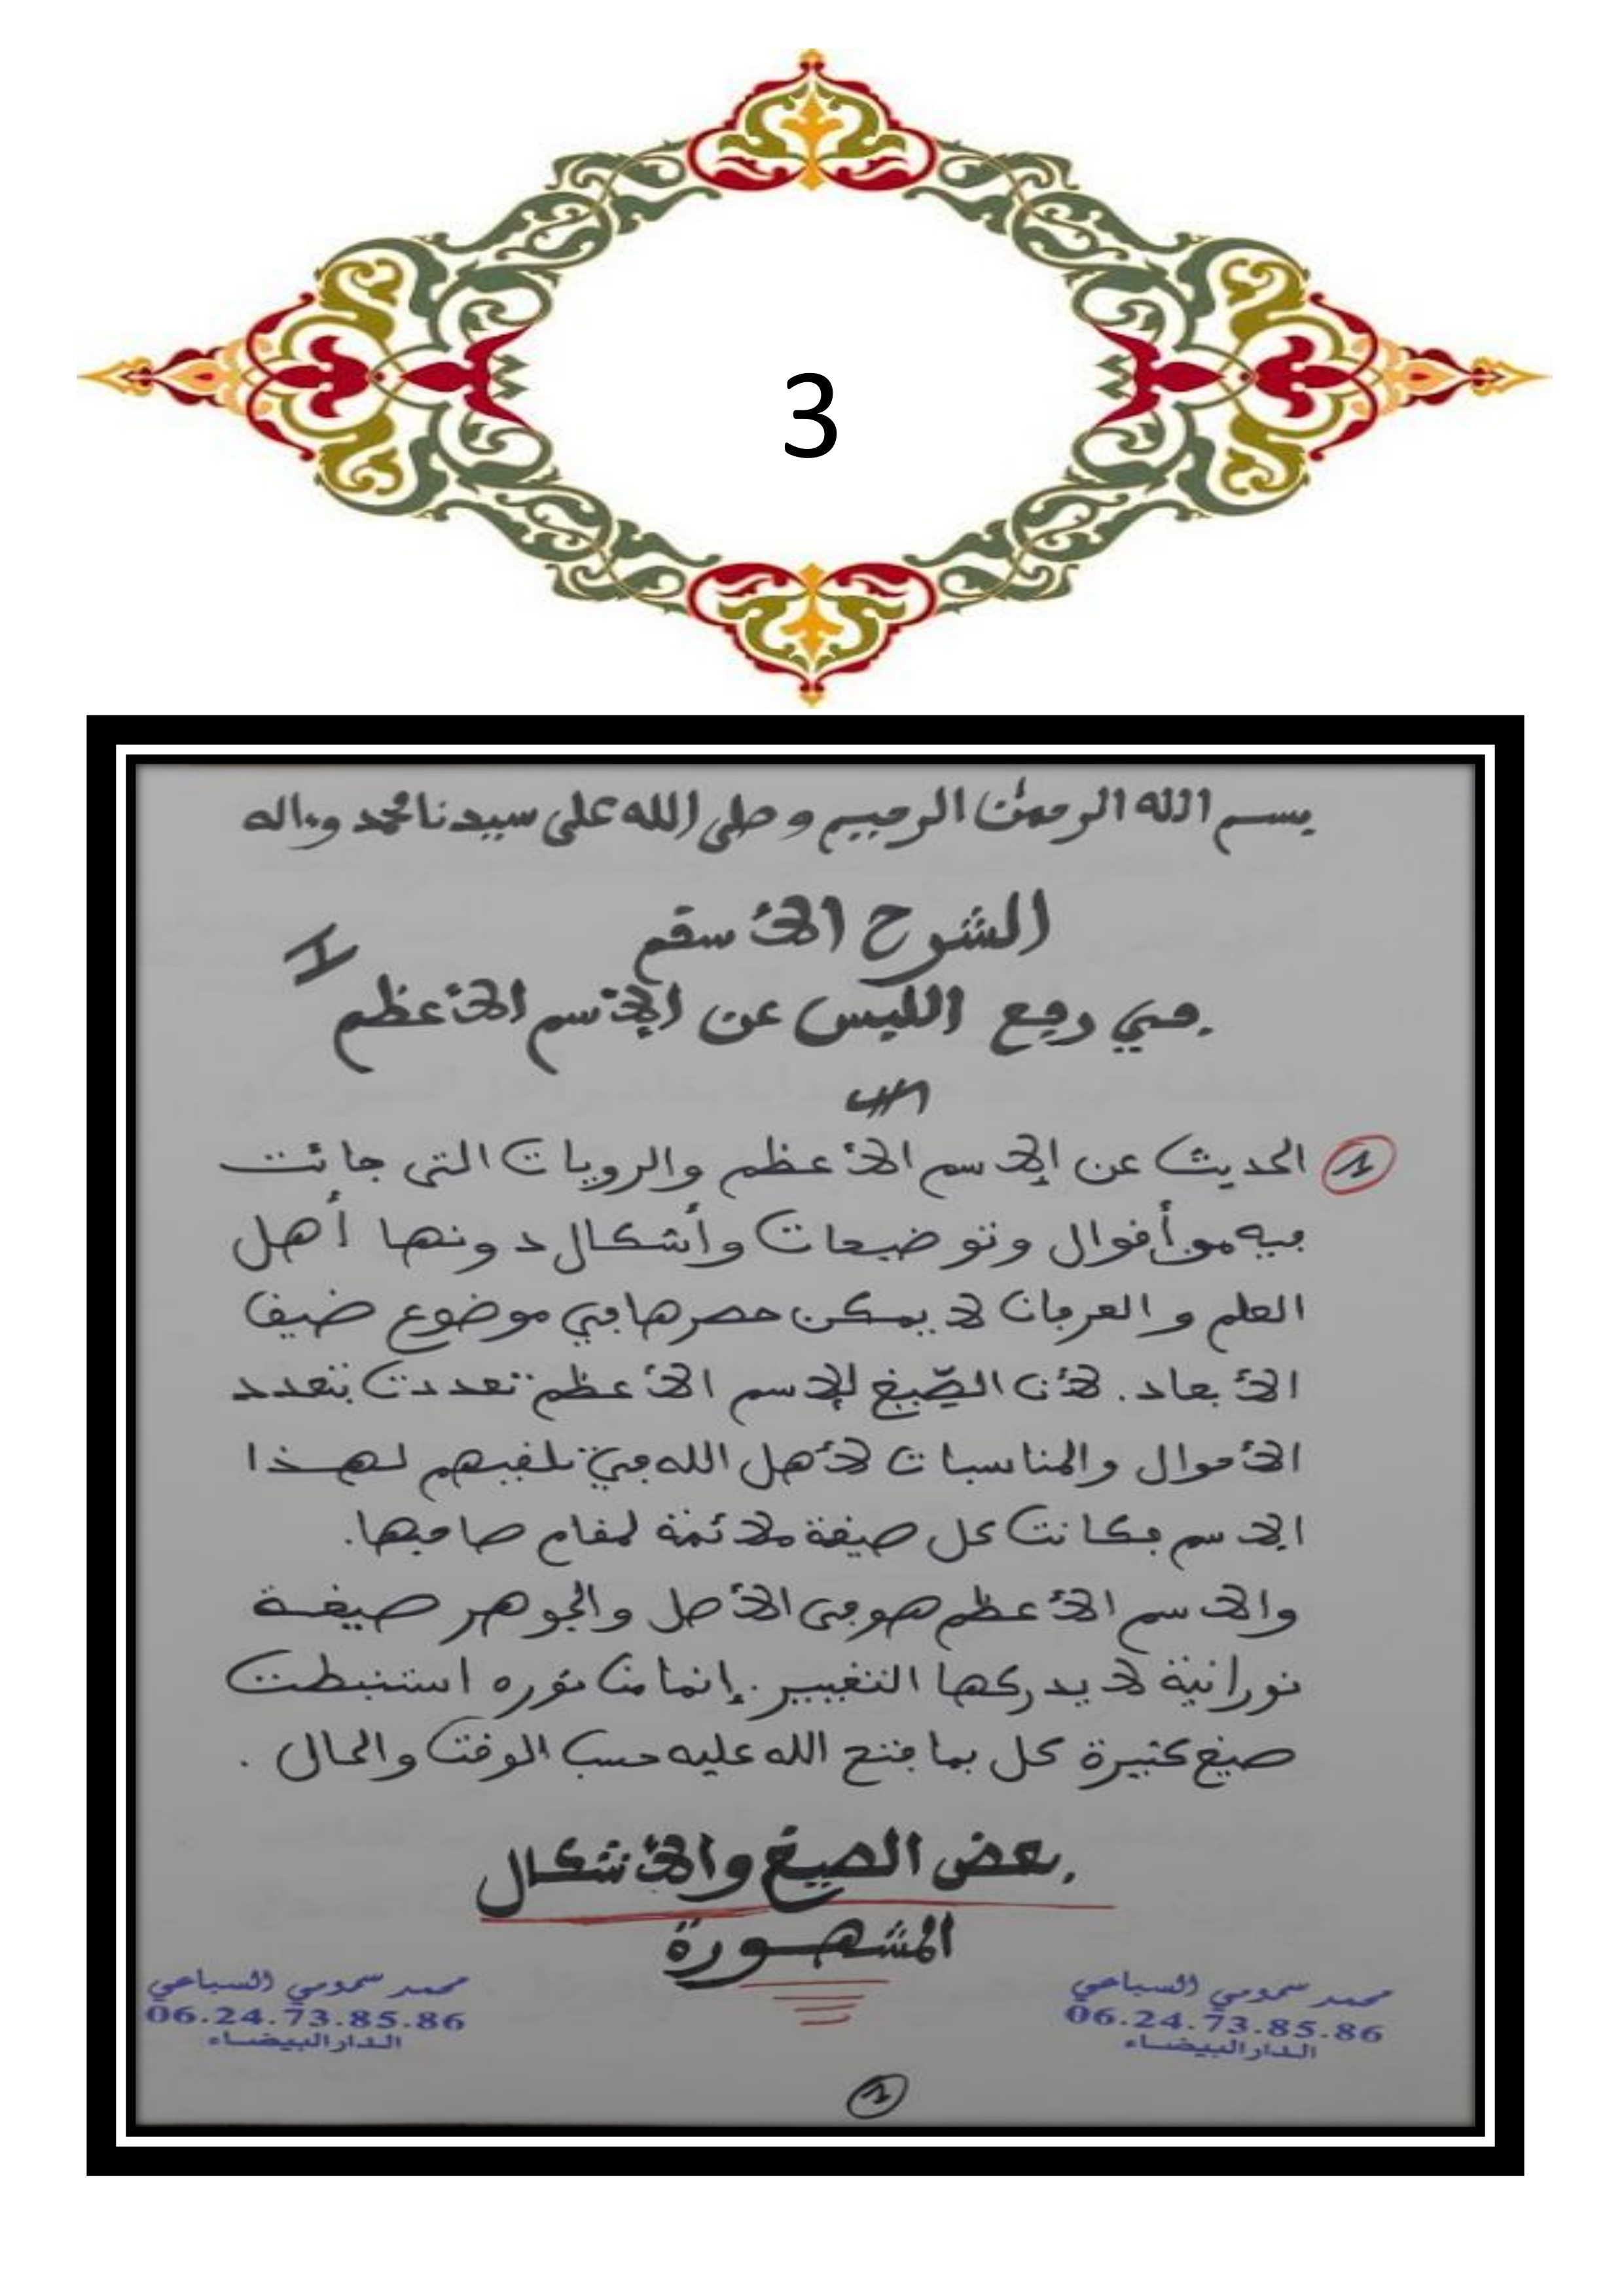 3
بسم الله الرحمن الرحيم وصلى الله على سيدنا محمد وءاله
الشرح الأسقم
في رفع اللبس عن الإسم الأعظم
1 الحديث عن الإسم الأعظم والرويات التي جائت
فيه من أقوال وتوضيحات وأشكال دونها أهل
العلم والعرفان لا يمكن حصرها في موضوع ضيق
الأبعاد. لأن الصيغ للإسم الأعظم تعددت بتعدد
الأحوال والمناسبات لأهل الله في تلقيهم لهذا
الإسم فكانت كل صيغة ملائمة لمقام صاحبها.
والاسم الأعظم هو في الأصل والجوهر صيغة
نورانية لا يدركها التغيير. إنما من نوره استنبطت
صيغ كثيرة كل بما فتح الله عليه حسب الوقت والحال.
بعض الصيغ والأشكال
المشهورة
محمد سمومي السباعي
06.24.73.85.86
الدار البيضاء
محمد سمومي السباعي
06.24.73.85.86
الدار البيضاء
1